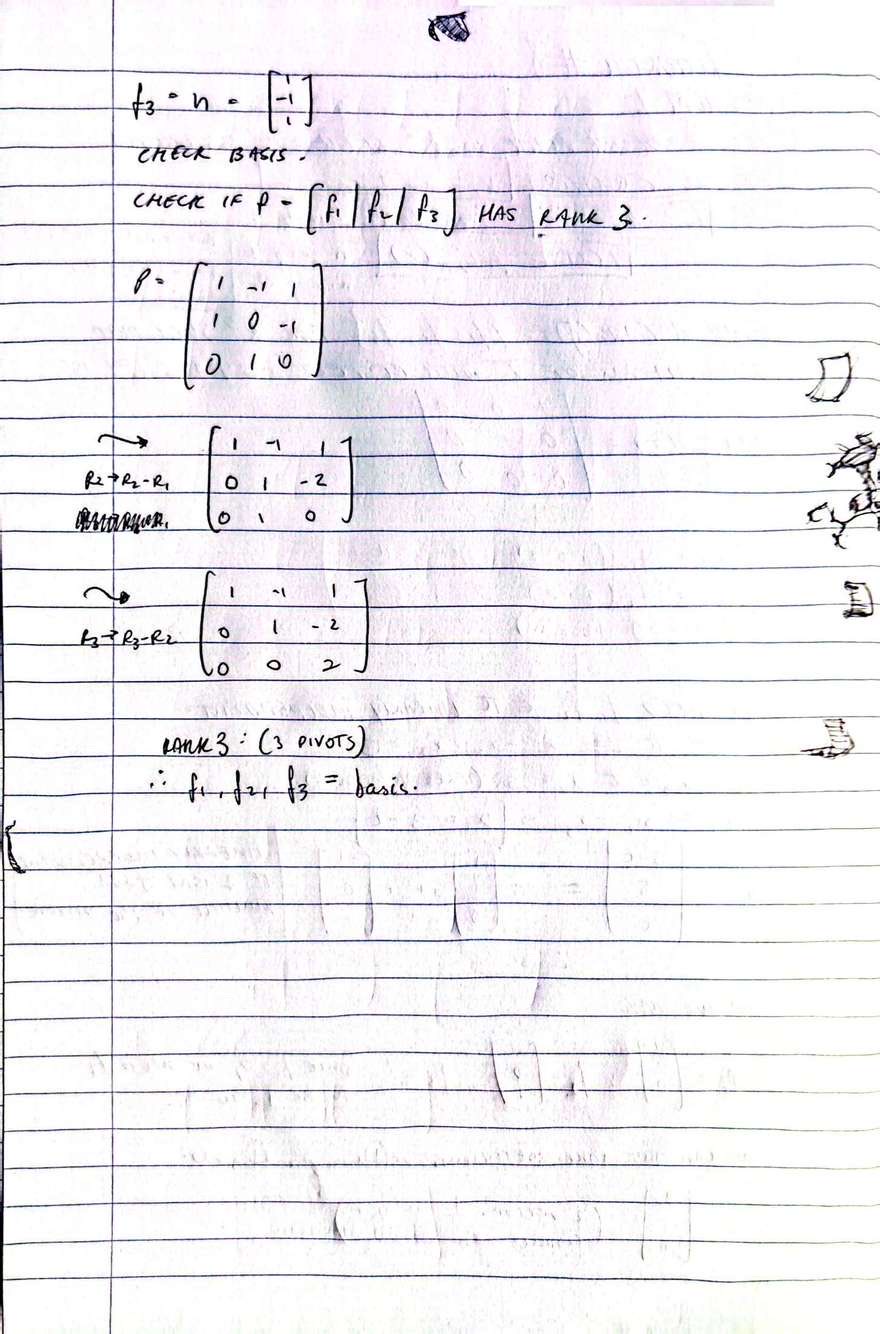 f3 = n = [1 -1 1]
CHECK BASIS.
CHECK IF P = [f1 | f2 | f3] HAS RANK 3.
P = [1 -1 1
1 0 -1
0 1 0]
R2→R2-R1 [1 -1 1
0 1 -2
0 1 0]
R3→R3-R2 [1 -1 1
0 1 -2
0 0 2]
RANK 3: (3 PIVOTS)
∴ f1, f2, f3 = basis.